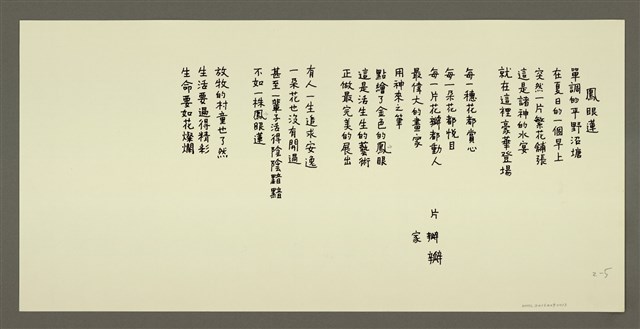 鳳眼蓮
單調的平野沼塘
在夏日的一個早上
突然一片繁花鋪張
這是諸神的水宴
就在這裡豪華登場
每一穗花都賞心
每一朵花都悅目
每一片花瓣都動人
最偉大的畫家
用神來之筆
點繪了金色的鳳眼
這是活生生的藝術
正做最完美的展出
有人一生追求安逸
一朵花也沒有開過
甚至一輩子活得陰陰黯黯
不如一株鳳眼蓮
放牧的村童也了然
生活要過得精彩
生命要如花燦爛
片瓣瓣
家
2-5